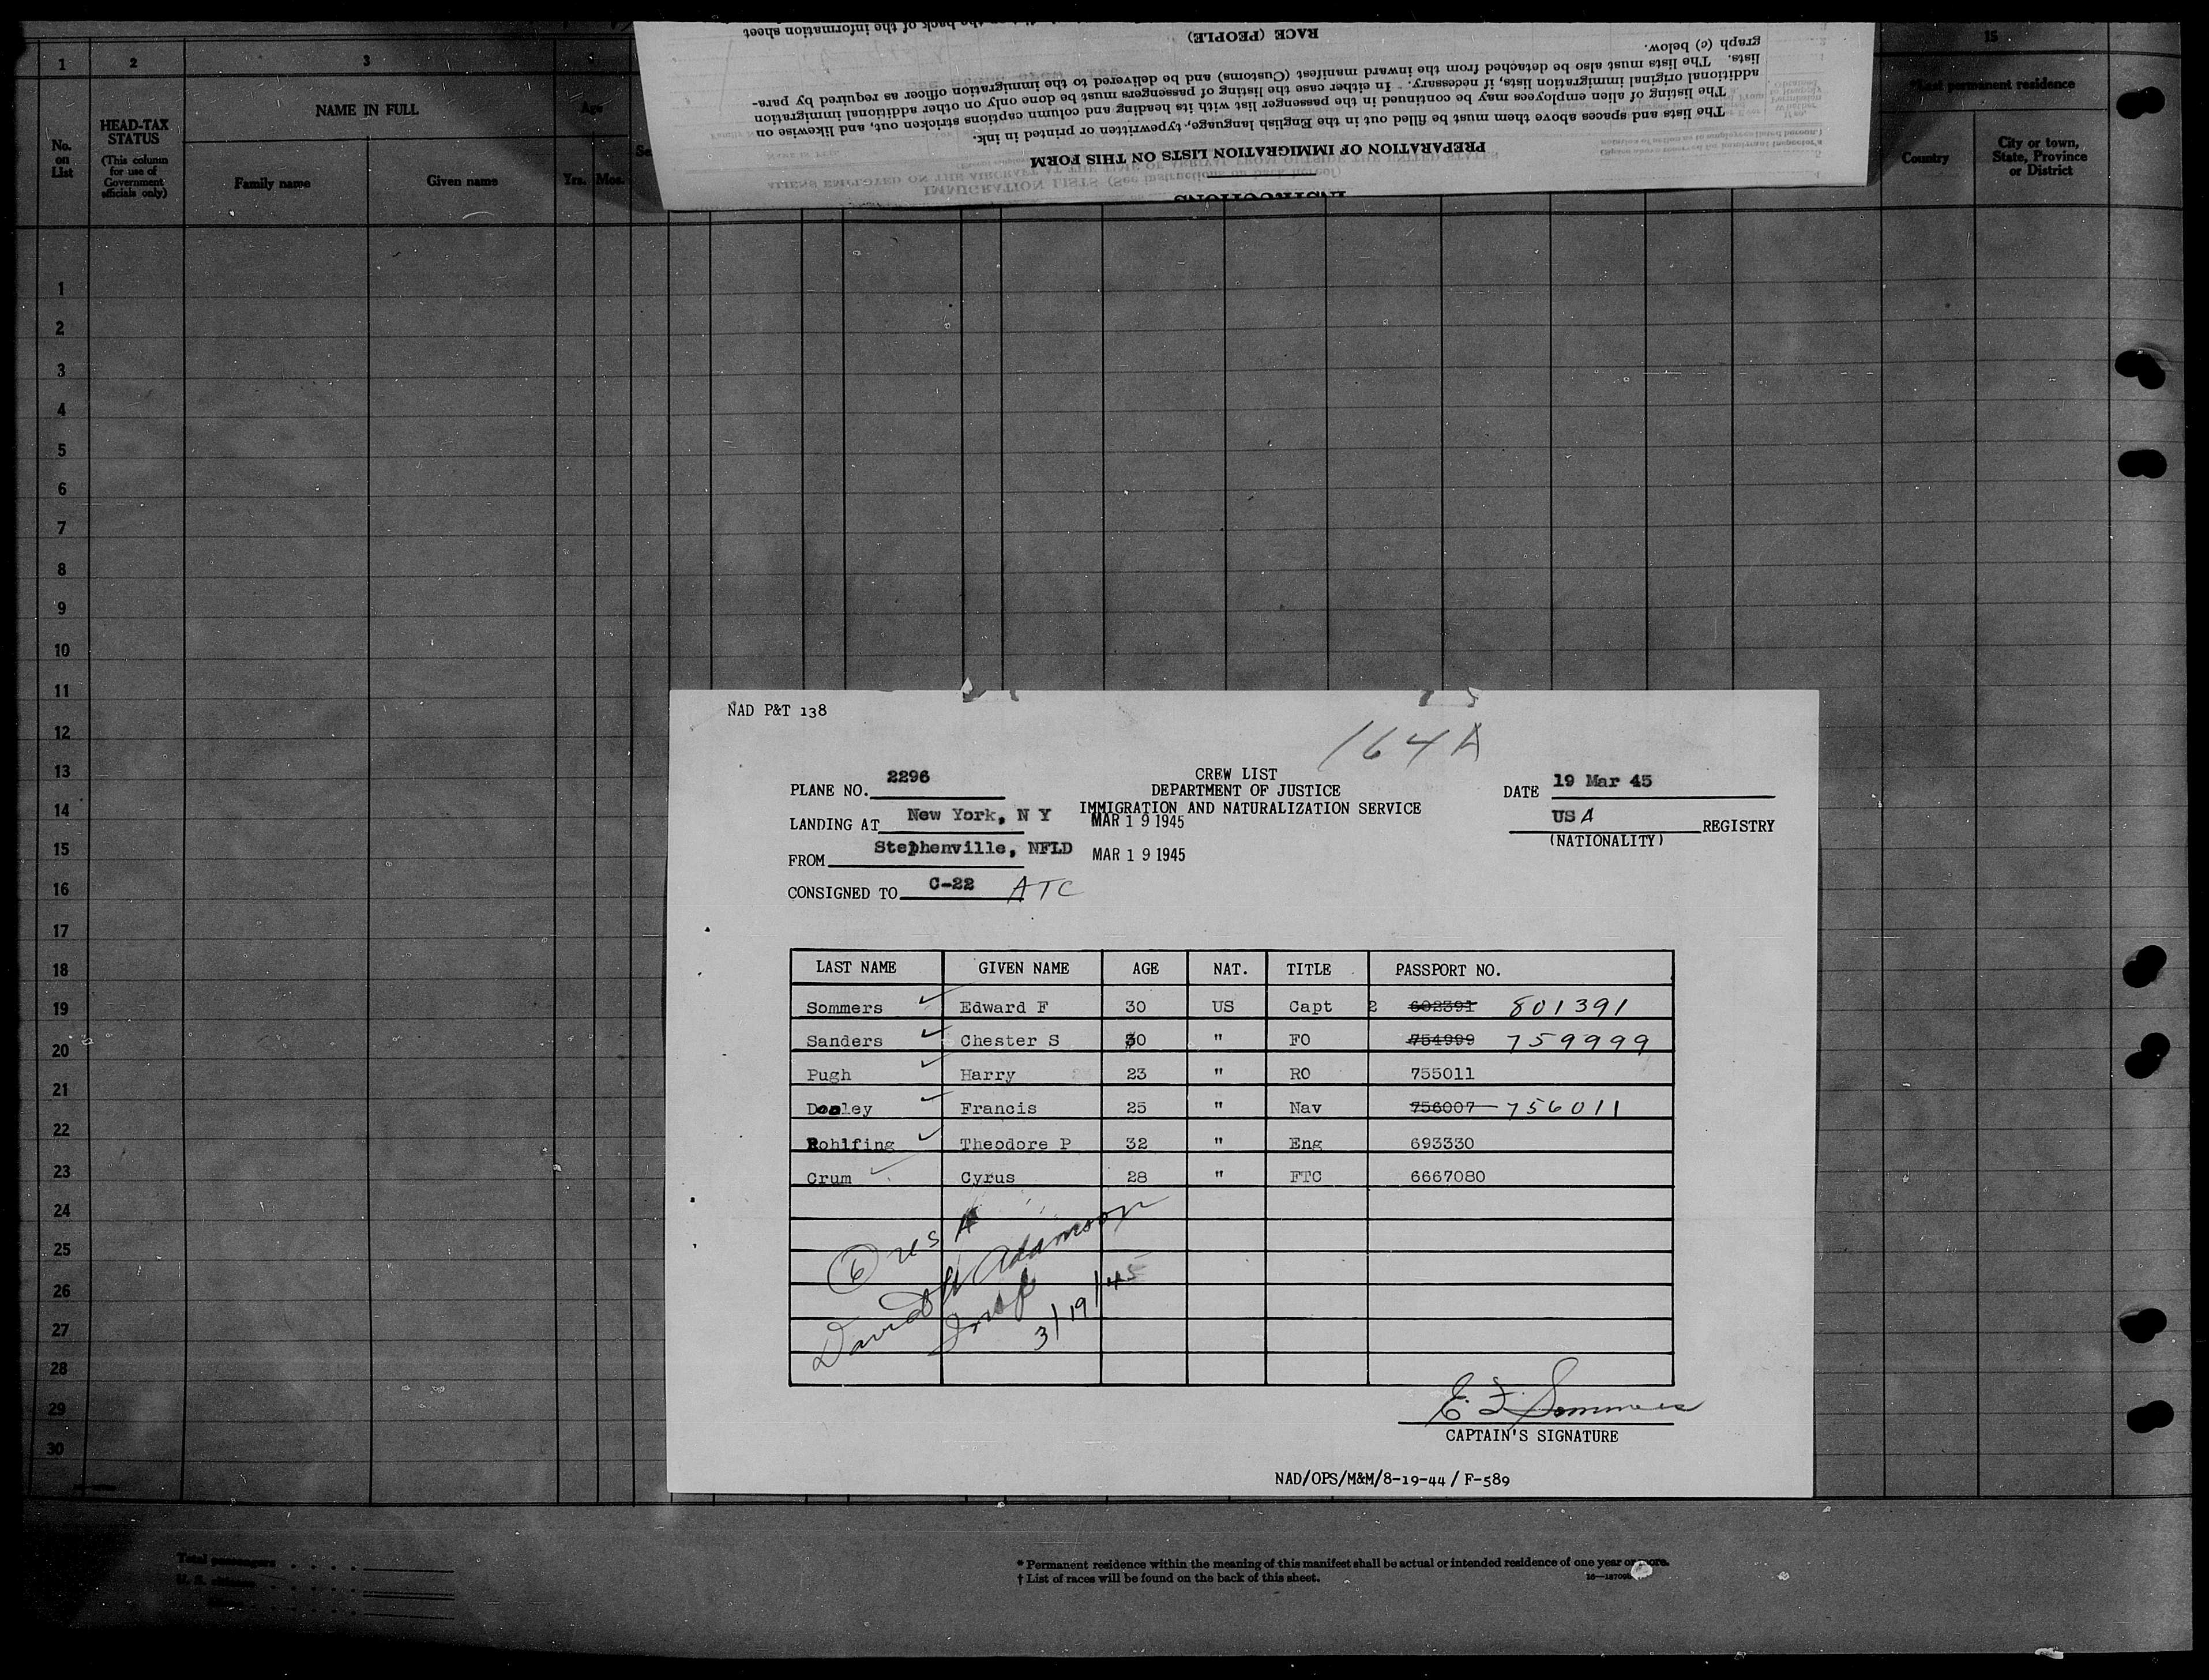 1
2
3
15
HEAD-TAX STATUS
(This column for use of Government officials only)
NAME IN FULL
Age
*Last permanent residence
No. on List
Family name
Given name
Yrs.
Mos.
Country
City or town, State, Province or District
INSTRUCTIONS
PREPARATION OF IMMIGRATION LISTS ON THIS FORM
The lists and spaces above them must be filled out in the English language, typewritten or printed in ink.
The listing of alien employees may be continued in the passenger list with its heading and column captions stricken out, and likewise on
additional original immigration lists, if necessary. In either case the listing of passengers must be done only on other additional immigration
lists. The lists must also be detached from the inward manifest (Customs) and be delivered to the immigration officer as required by para-
graph (c) below.
RACE (PEOPLE)
the back of the information sheet
1
2
3
4
5
6
7
8
9
10
11
12
13
14
15
16
17
18
19
20
21
22
23
24
25
26
27
28
29
30
NAD P&T 138
164A
PLANE NO. 2296
CREW LIST
DATE 19 Mar 45
DEPARTMENT OF JUSTICE
LANDING AT New York, N Y
IMMIGRATION AND NATURALIZATION SERVICE
MAR 19 1945
USA REGISTRY
(NATIONALITY)
FROM Stephenville, NFLD
MAR 19 1945
CONSIGNED TO C-22 ATC
LAST NAME GIVEN NAME AGE NAT. TITLE PASSPORT NO.
Sommers Edward F 30 US Capt 2 602391 801391
Sanders Chester S 30 " FO 754999 759999
Pugh Harry 23 " RO 755011
Dooley Francis 25 " Nav 756007 756011
Rohlfing Theodore P 32 " Eng 693330
Crum Cyrus 28 " FTC 6667080
6 us A
David H Adamson
Insp
3/19/45
E. F. Sommers
CAPTAIN'S SIGNATURE
NAD/OPS/M&M/8-19-44 / F-589
Total passengers
U. S. citizens
* Permanent residence within the meaning of this manifest shall be actual or intended residence of one year or more.
† List of races will be found on the back of this sheet.